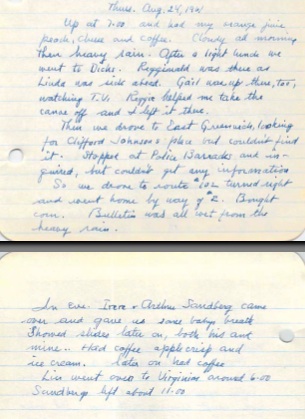 Thurs. Aug. 24, 19
Up at 7:00 and had my orange juice
peach, cheese and coffee. Cloudy all morning
then heavy rain. After a light lunch we
went to Dicks. Reggienald was there as
Linda was sick abed. Gail was up there, too,
watching T.V. Reggie helped me take the
canoe off and I left it there.
Then we drove to East Greenwich, looking
for Clifford Johnson's place but couldn't find
it. Stopped at Police Barracks and in-
quired, but couldn't get any information
So we drove to route #102 turned right
and went home by way of #2. Bought
corn. Bulletin was all wet from the
heavy rain.
In Eve. Irere + Arthur Sandberg came
over and gave us some baby breath
Showed slides later on, both his and
mine.. Had coffee apple crisp and
ice cream. Later on had coffee
Lin went over to Virginias around 6:00
Sandbergs left about 11:00